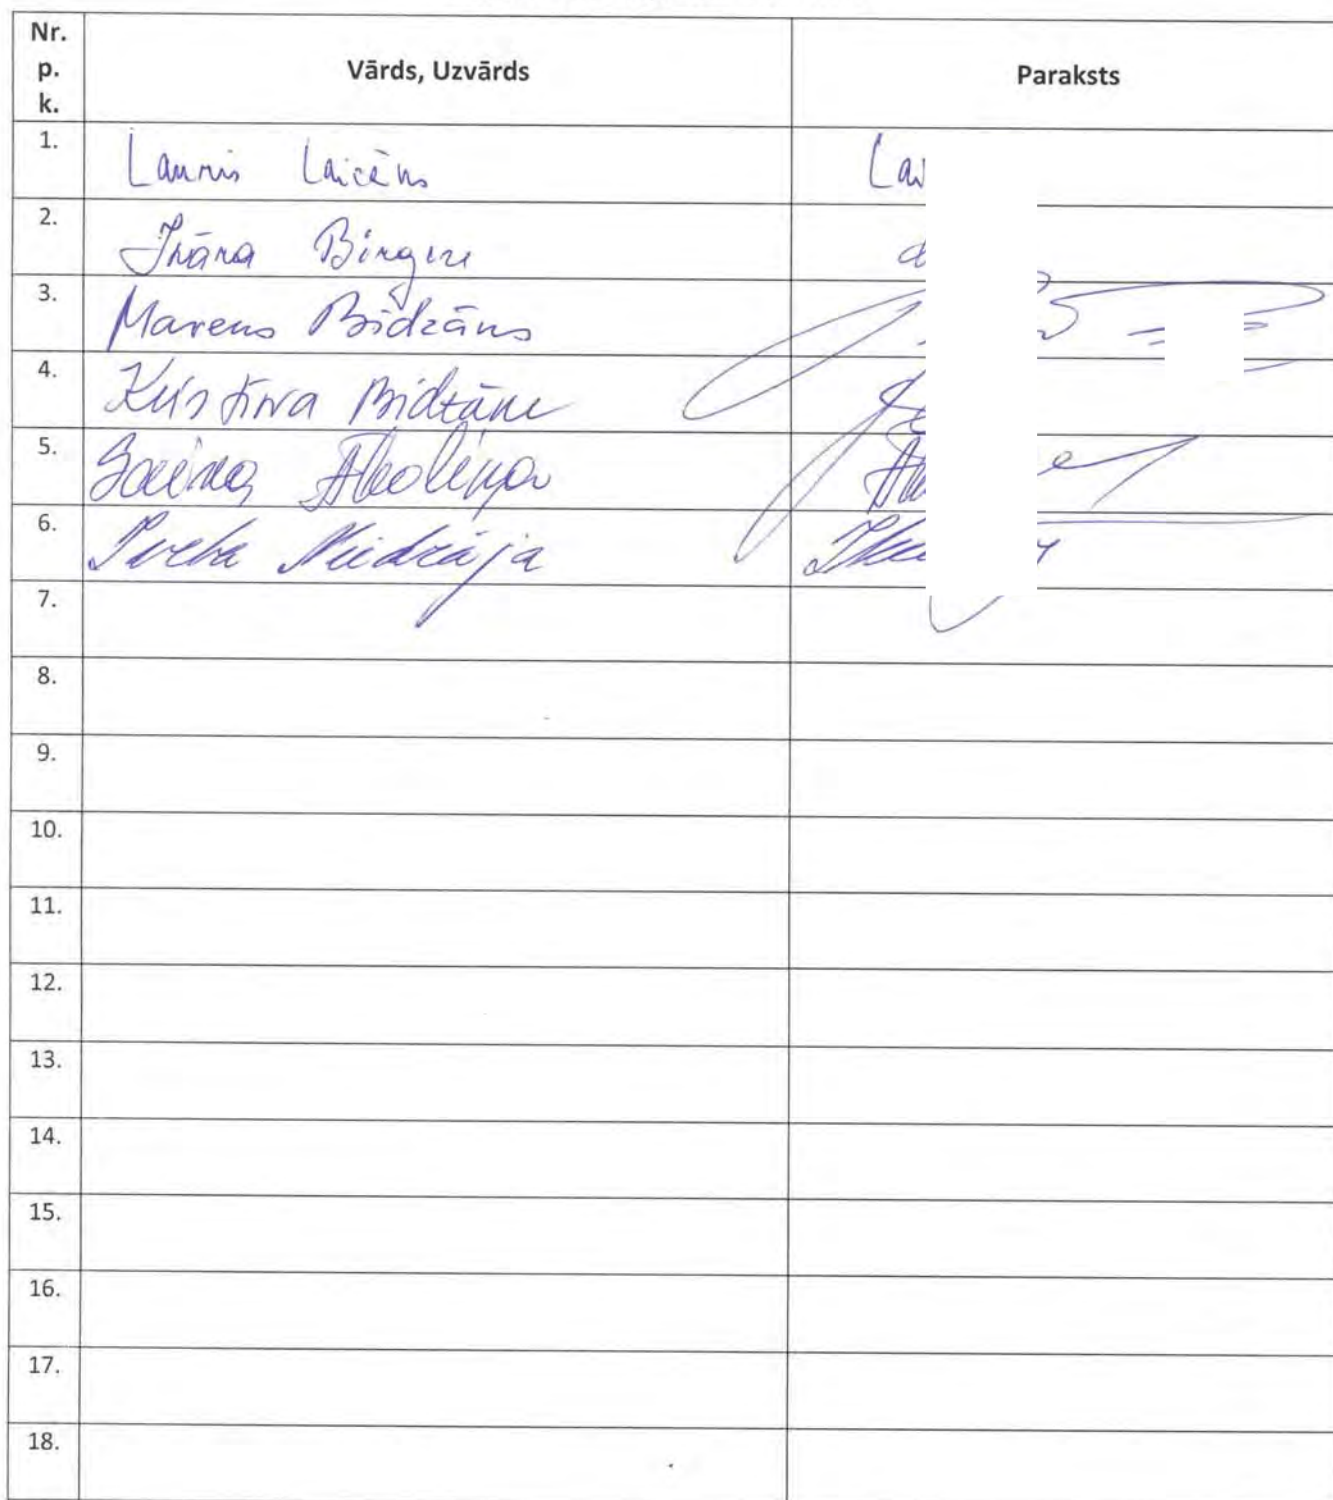 Nr. p. k. Vārds, Uzvārds Paraksts
1. Lauris Laicāns
2. Ināra Birgere
3. Marens Bidzāns
4. Kristīna Bidzāne
5. Āboliņa
6. Iveta Niedrāja
7.
8.
9.
10.
11.
12.
13.
14.
15.
16.
17.
18.